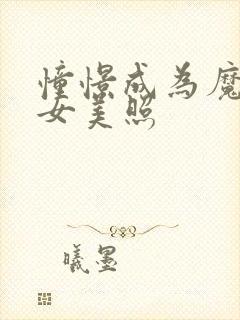 憧憬成為魔
女美照
曦墨